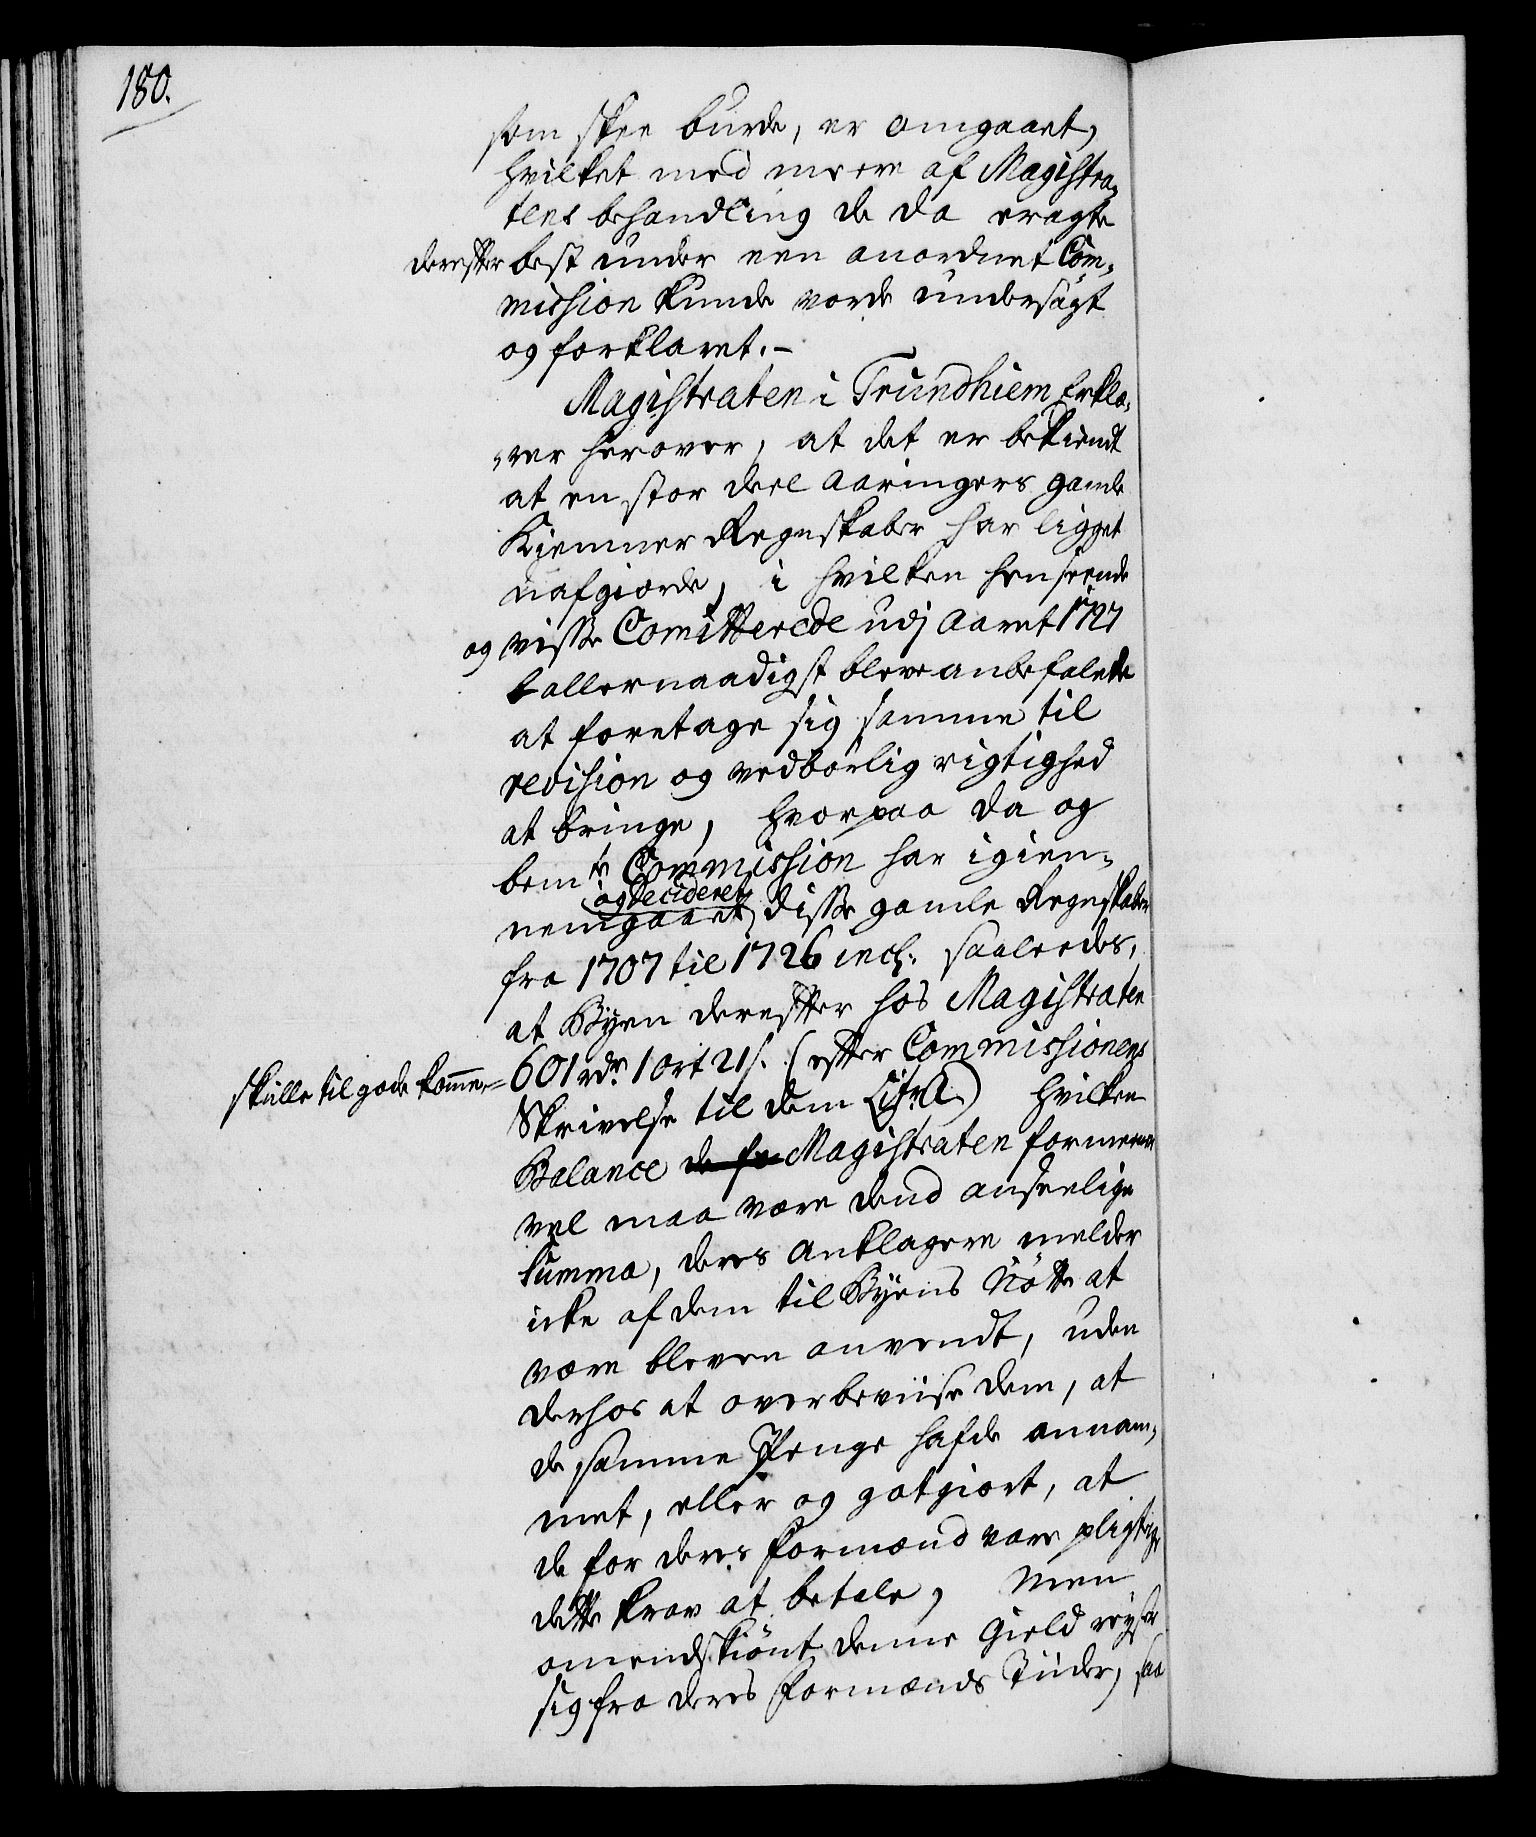 180.
som skee burde, er omgaaet,
hvilket med meere af Magistra-
tens behandling de da eragte
derefter best under een anordnet Com-
mission kunde vorde undersøgt
og forklaret.-
Magistraten i Trundhiem Erklæ-
rer herover, at det er bekiendt
at en stor deel Aaringers gamle
Kiemner Regnskaber har ligget
uafgiorde, i hvilken henseende
og visse Comitterede udj Aaret 1727
allernaadigst bleve anbefalede
at foretage sig samme til
revision og vedbørlig rigtighed
at bringe, hvorpaa da og
bemte Commission har igien-
og decideret
nemgaaet disse gamle Regnskaber
fra 1707 til 1726 incl: saaleedes,
at Byen derefter hos Magistraten
skulle til gode komme
601 rdr 1 ort 21 s. (efter Commissionens
Skrivelse til dem ) hvilken
Balance de fo Magistraten formeener
vel maa være dend anseelige
Summa, deres Anklagere melder
icke af dem til Byens Nötte at
være bleven anvendt, uden
derhos at overbeviise dem, at
de samme Penge hafde annam-
met, eller og gotgiort, at
de for deres Formænd vare pligtige
dette krav at betale, Men
omendskiønt denne Gield reyser
sig fra deres Formænds Tiider, saa